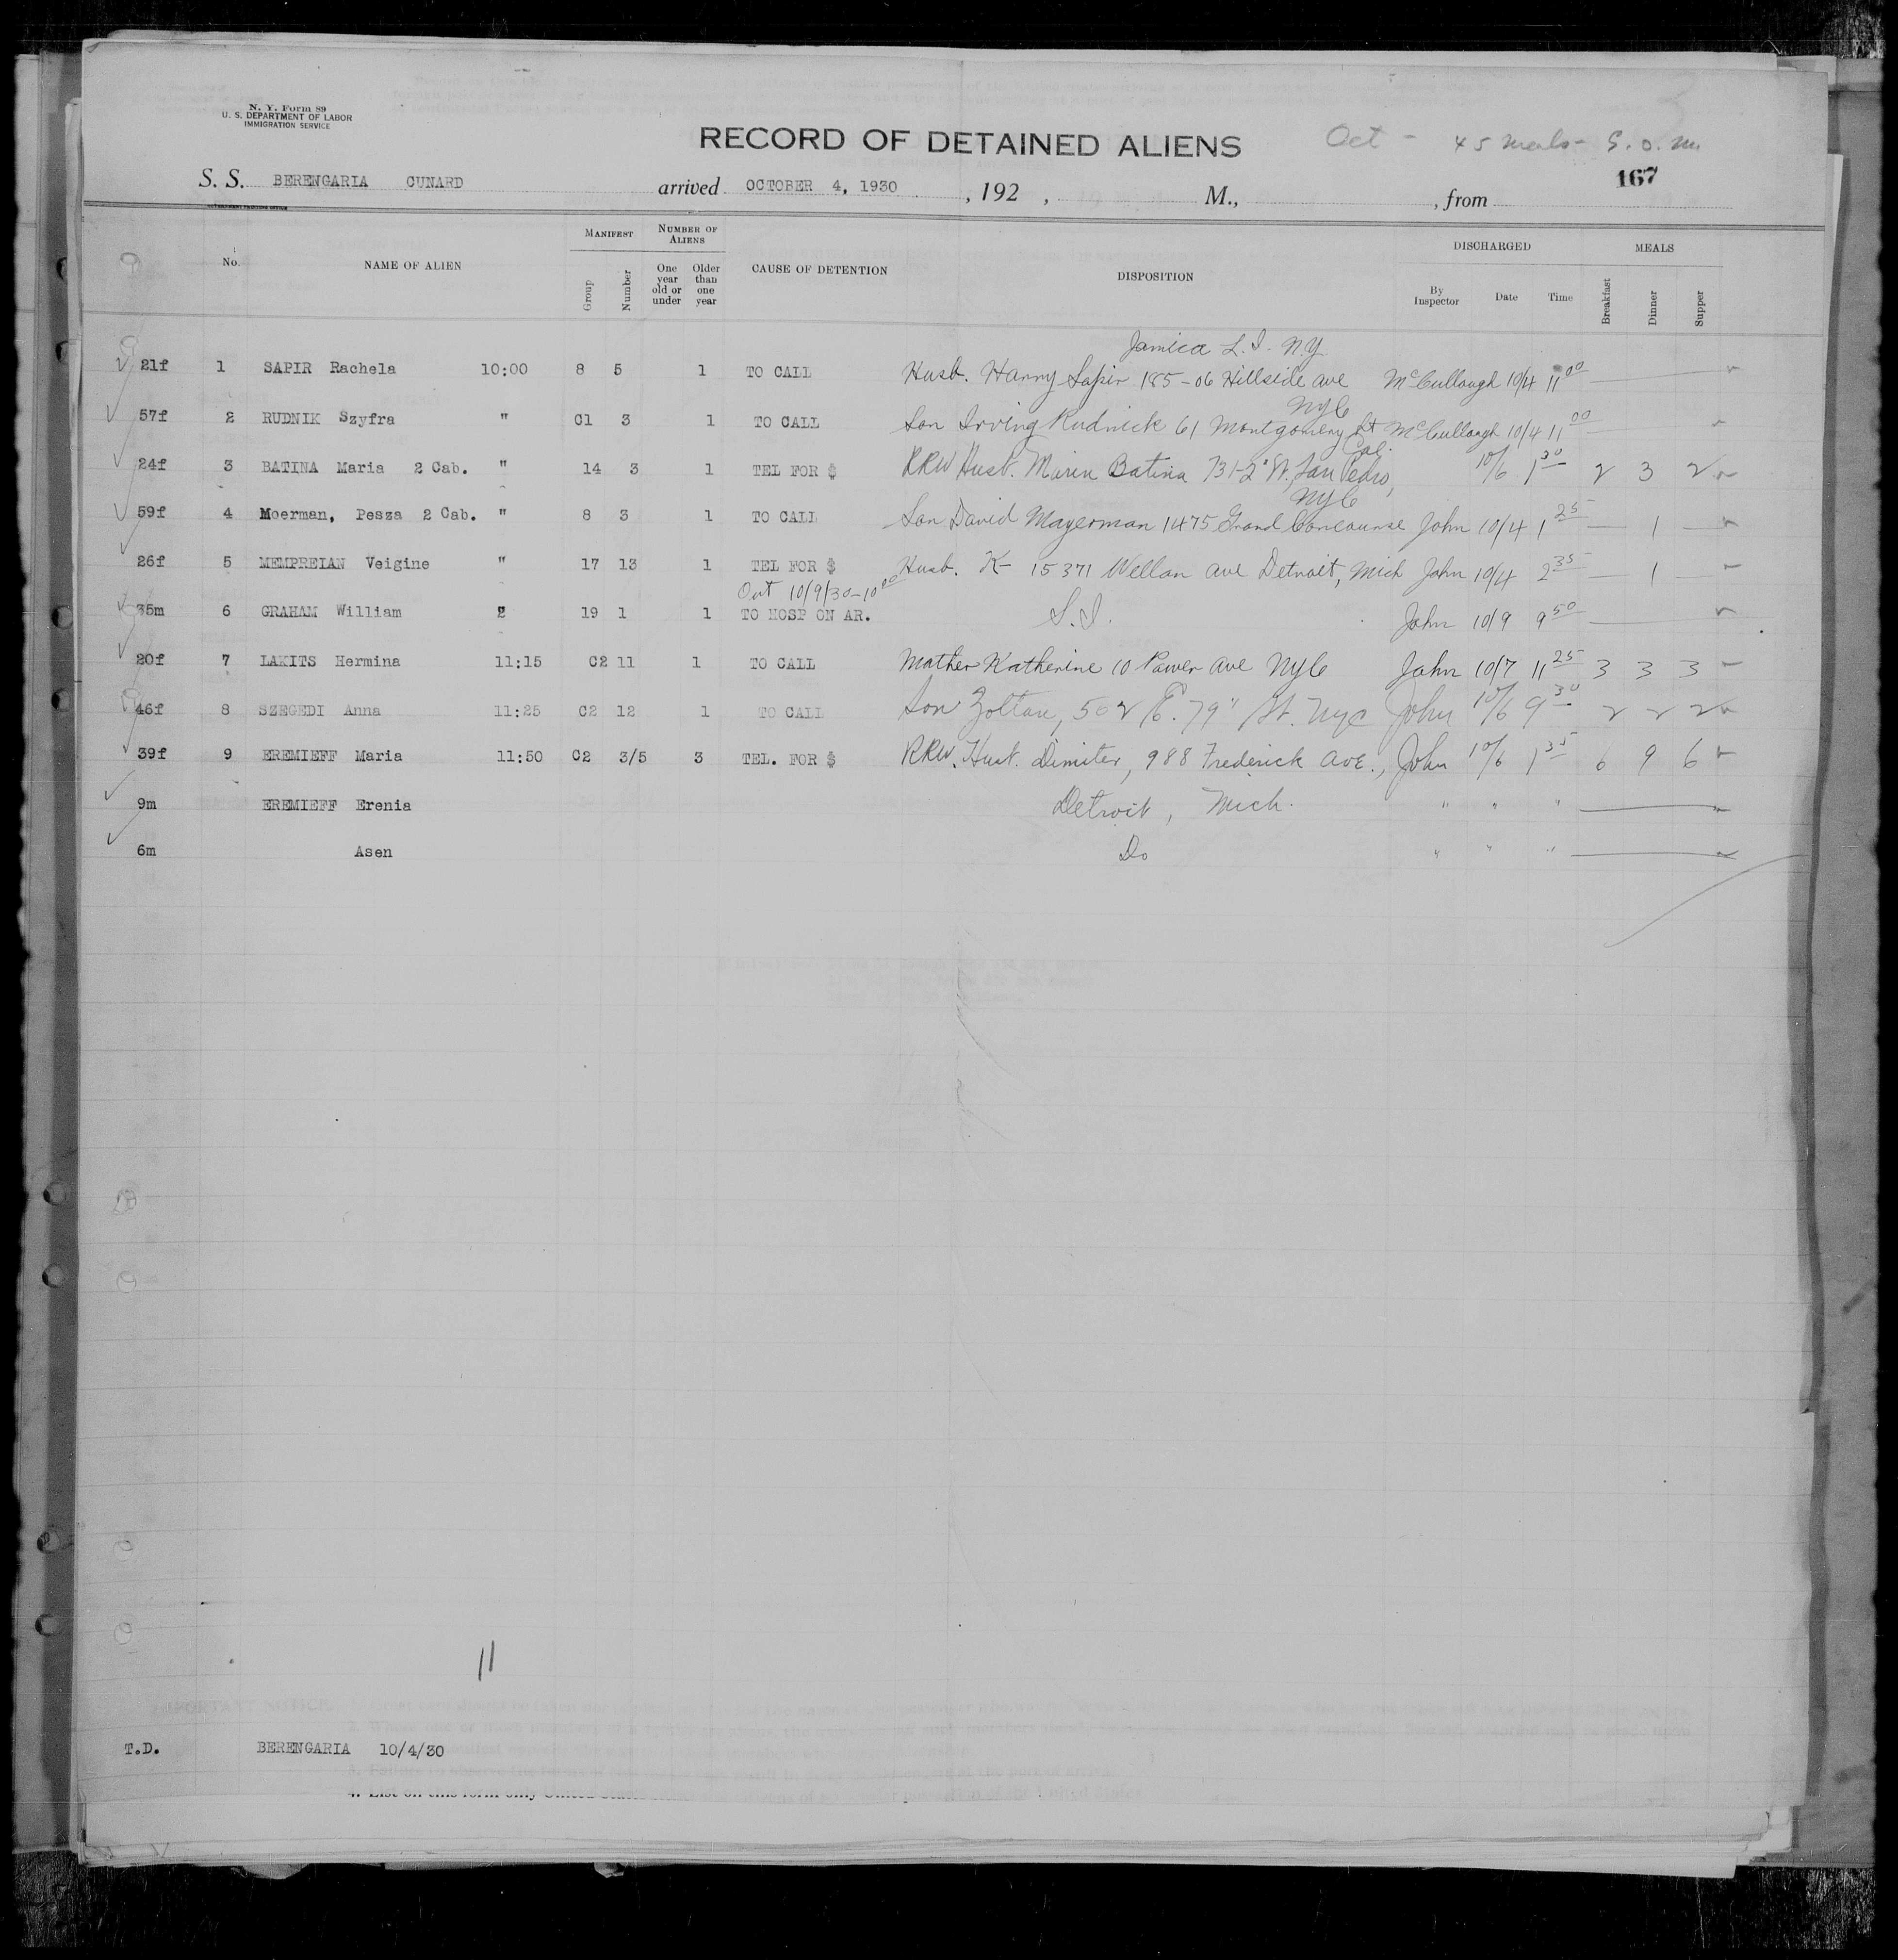 N. Y. Form 89
U. S. DEPARTMENT OF LABOR
IMMIGRATION SERVICE
RECORD OF DETAINED ALIENS Oct - 45 meals - S.O.M.
167
S. S. BERENGARIA CUNARD arrived OCTOBER 4, 1930 , 192 , M., , from
No. NAME OF ALIEN MANIFEST Group Number NUMBER OF ALIENS One year old or under Older than one year CAUSE OF DETENTION DISPOSITION DISCHARGED By Inspector Date Time MEALS Breakfast Dinner Supper
Jamica L.I. N.Y.
21f 1 SAPIR Rachela 10:00 8 5 1 TO CALL Husb. Harry Sapir 185-06 Hillside ave McCullough 10/4 11 00
NYC
57f 2 RUDNIK Szyfra " C1 3 1 TO CALL Son Irving Rudnick 61 Montgomery St McCullough 10/4 11 00
Cal.
24f 3 BATINA Maria 2 Cab. " 14 3 1 TEL FOR $ RRW Husb. Marin Batina 731-2" St, San Pedro, 10/6 1 30 2 3 2
NYC
59f 4 Moerman, Pesza 2 Cab. " 8 3 1 TO CALL Son David Mayerman 1475 Grand Concourse John 10/4 1 25 — 1 —
26f 5 MEMPREIAN Veigine " 17 13 1 TEL FOR $ Husb. K- 15371 Wellan ave Detroit, Mich John 10/4 2 35 — 1 —
Out 10/9/30-10 00
35m 6 GRAHAM William 2 19 1 1 TO HOSP ON AR. S.I. John 10/9 9 50
20f 7 LAKITS Hermina 11:15 C2 11 1 TO CALL Mother Katherine 10 Pawer ave NYC John 10/7 11 25 3 3 3
46f 8 SZEGEDI Anna 11:25 C2 12 1 TO CALL Son Zoltan, 502 E. 79" St. NYC John 10/6 9 30 2 2 2
39f 9 EREMIEFF Maria 11:50 C2 3/5 3 TEL. FOR $ RRW. Husb. Dimiter, 988 Frederick Ave., John 10/6 1 35 6 9 6
9m EREMIEFF Erenia Detroit, Mich. " " "
6m Asen Do " " "
11
T.D. BERENGARIA 10/4/30